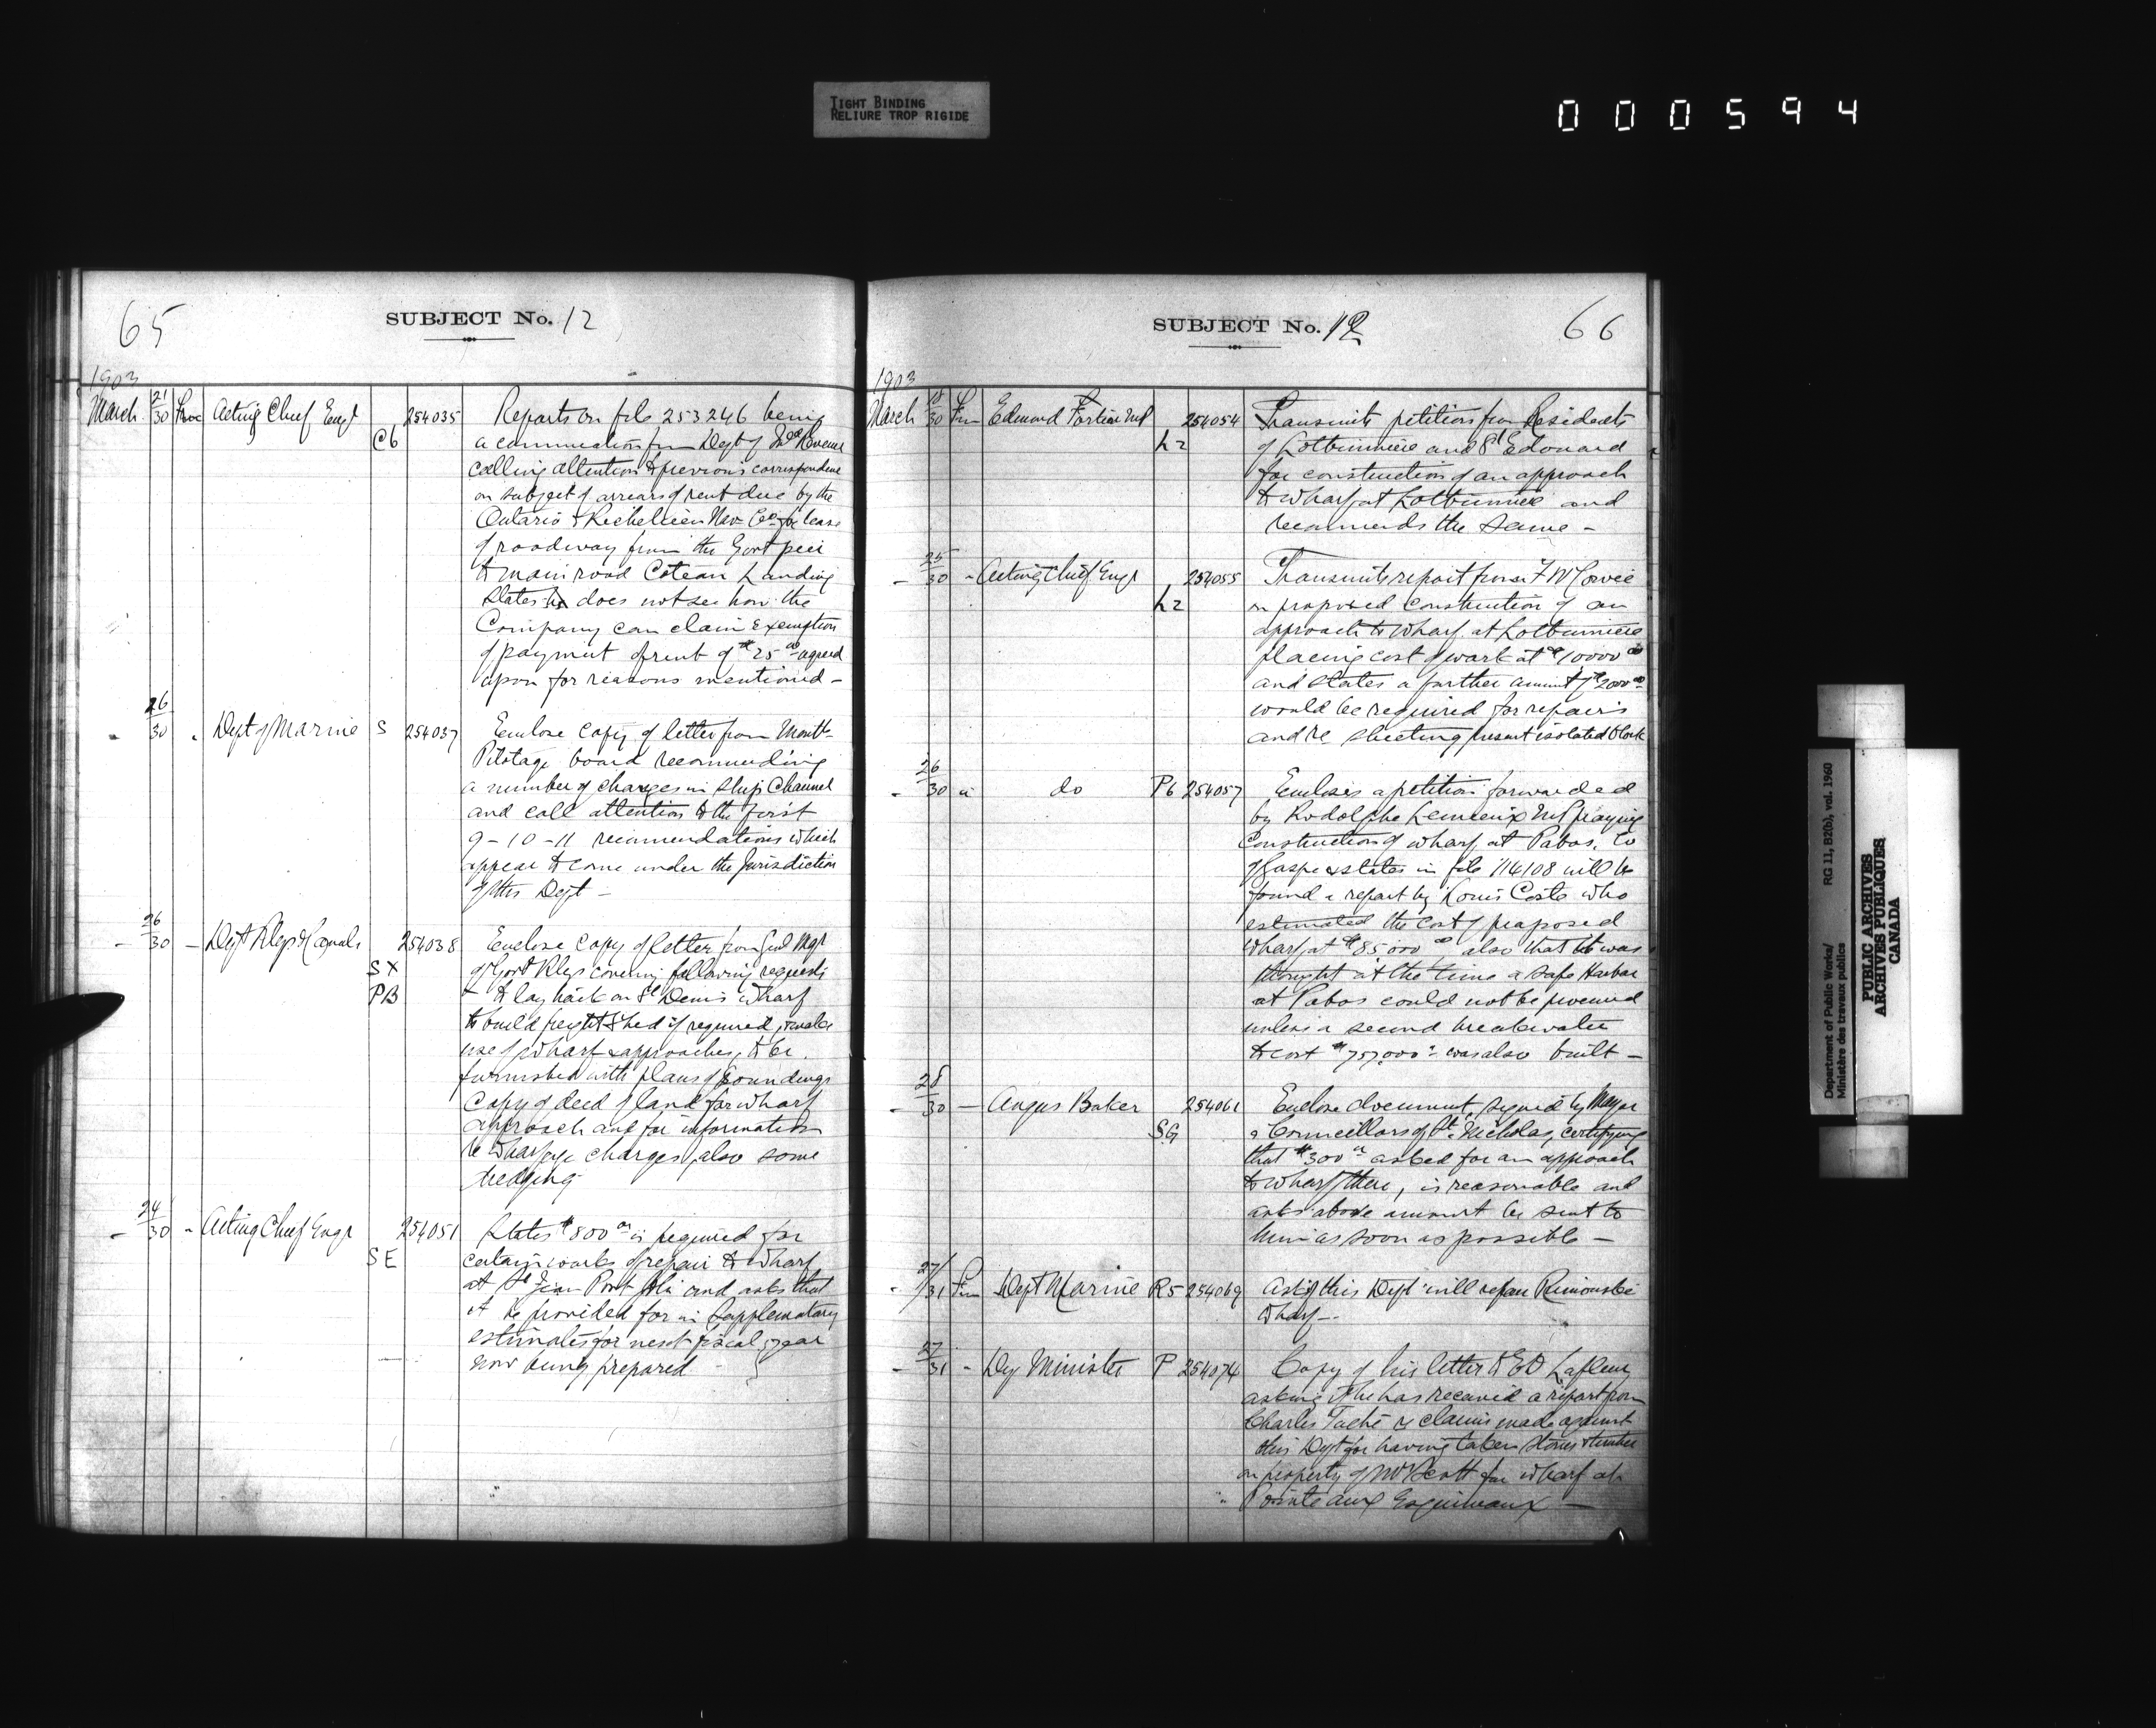 TIGHT BINDING
RELIURE TROP RIGIDE
000594
65
SUBJECT No. 12
1903
March 21/30 Acting Chief Engr C6 254035 Reports on file 253246 being
a communication from Dept of Inld Revenue
calling attention to previous correspondence
on subject of arrears of rent due by the
Ontario & Richelieu Nav Co for lease
of roadway from the Govt pier
to main road Coteau Landing
States he does not see how the
Company can claim exemption
of payment of rent of $25 00 agreed
upon for reasons mentioned -
26/30 Dept of Marine S 254037 Enclose copy of letter from Montl
Pilotage board recommending
a number of changes in Ship Channel
and call attention to the first
9-10-11 recommendations which
appear to come under the Jurisdiction
of this Dept -
26/30 - Dept Rlys & Canals SX PB 254038 Enclose copy of letter from Genl Mgr
of Govt Rlys covering following requests
- to lay track on St Denis wharf
to build freight shed if required, make
use of wharf & approaches, to be
furnished with plans of soundings
Copy of deed of land for wharf
approach and for information
re wharfage charges, also some
dredging
24/30 - Acting Chief Engr SE 254051 States $800 00 is required for
certain works of repair to wharf
at St Jean Port Joli and asks that
it be provided for in Supplementary
estimates for next fiscal year
now being prepared
SUBJECT No. 12
66
1903
March 18/30 Edmond Fortier MP L2 254054 Transmits petition from Residents
of Lotbiniere and St Edouard
for construction of an approach
to wharf at Lotbiniere and
recommends the same -
25/30 - Acting Chief Engr L2 254055 Transmits report from F W Cowie
on proposed construction of an
approach to wharf at Lotbiniere
placing cost of work at $10000 00
and states a further amount of $2000 00
would be required for repairs
and re sheeting present isolated block
26/30 do P6 254057 Encloses a petition forwarded
by Rodolphe Lemieux MP praying
Construction of wharf at Pabos, Co
of Gaspe & states in file 114108 will be
found a report by Louis Coste who
estimated the cost of proposed
wharf at $85,000 00 also that it was
thought at the time a safe Harbor
at Pabos could not be procured
unless a second breakwater
to cost $ was also built -
28/30 - Angus Baker SG 254061 Enclose document, signed by Mayor
& Councillors of St. Nicholas, certifying
that $300 00 asked for an approach
to wharf there, is reasonable and
asks above amount be sent to
him as soon as possible -
27/31 Dept Marine R5 254069 Ask if this Dept will repair Rimouski
wharf -
27/31 - Dy Minister P 254074 Copy of his letter to E D Lafleur
asking if he has received a report from
Charles Taché re claims made against
this Dept for having taken stones & timber
on property of Mr Scott for wharf at
Pointe aux Esquimaux -
Department of Public Works/ RG 11, B2(b), vol. 1960
Ministère des travaux publics
PUBLIC ARCHIVES
ARCHIVES PUBLIQUES
CANADA